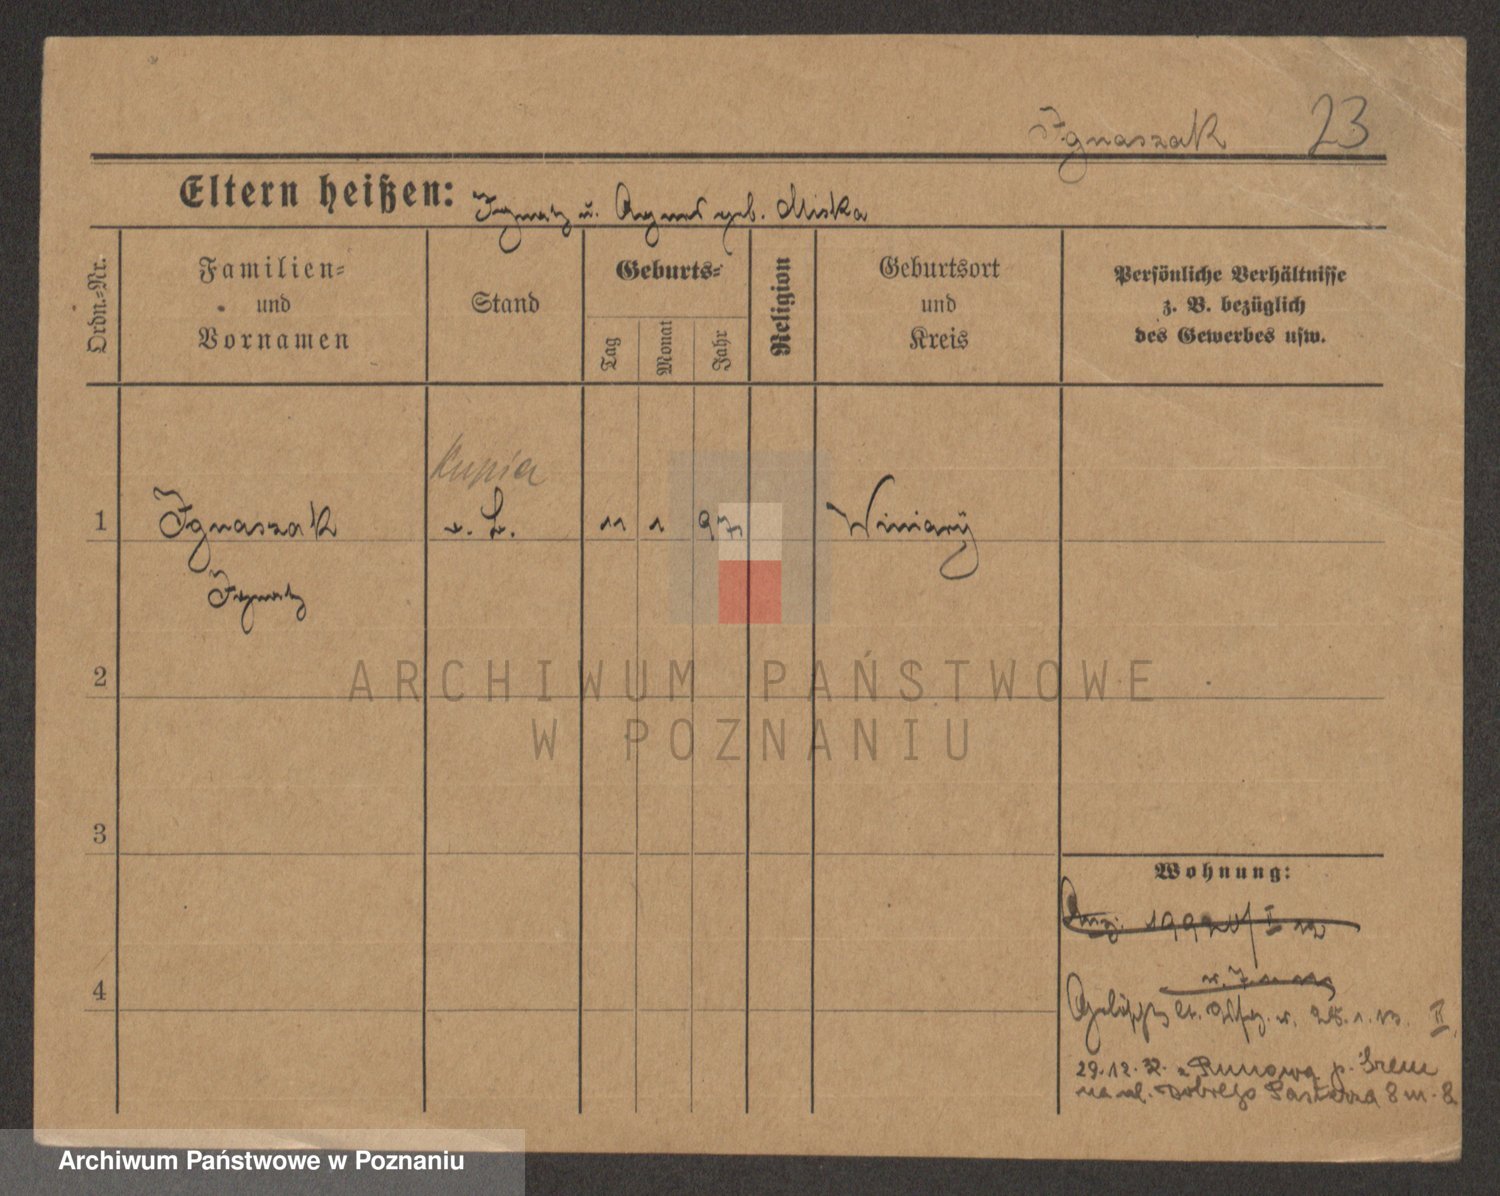 Ignaszak 23
Eltern heißen: Ignatz u. Agnes geb. Miska
Ordn.-Nr.
Familien-
und
Vornamen
Stand
Geburts-
Tag
Monat
Jahr
Religion
Geburtsort
und
Kreis
Persönliche Verhältnisse
z. B. bezüglich
des Gewerbes usw.
kupiec
1 Ignaszak 11 1 97 Winiary
Ignatz
2
3
4
Wohnung:
29.12.32. z Runowa p. Śrem
na ul. Dobrego Pasterza 8 m. 8
ARCHIWUM PAŃSTWOWE
W POZNANIU
Archiwum Państwowe w Poznaniu